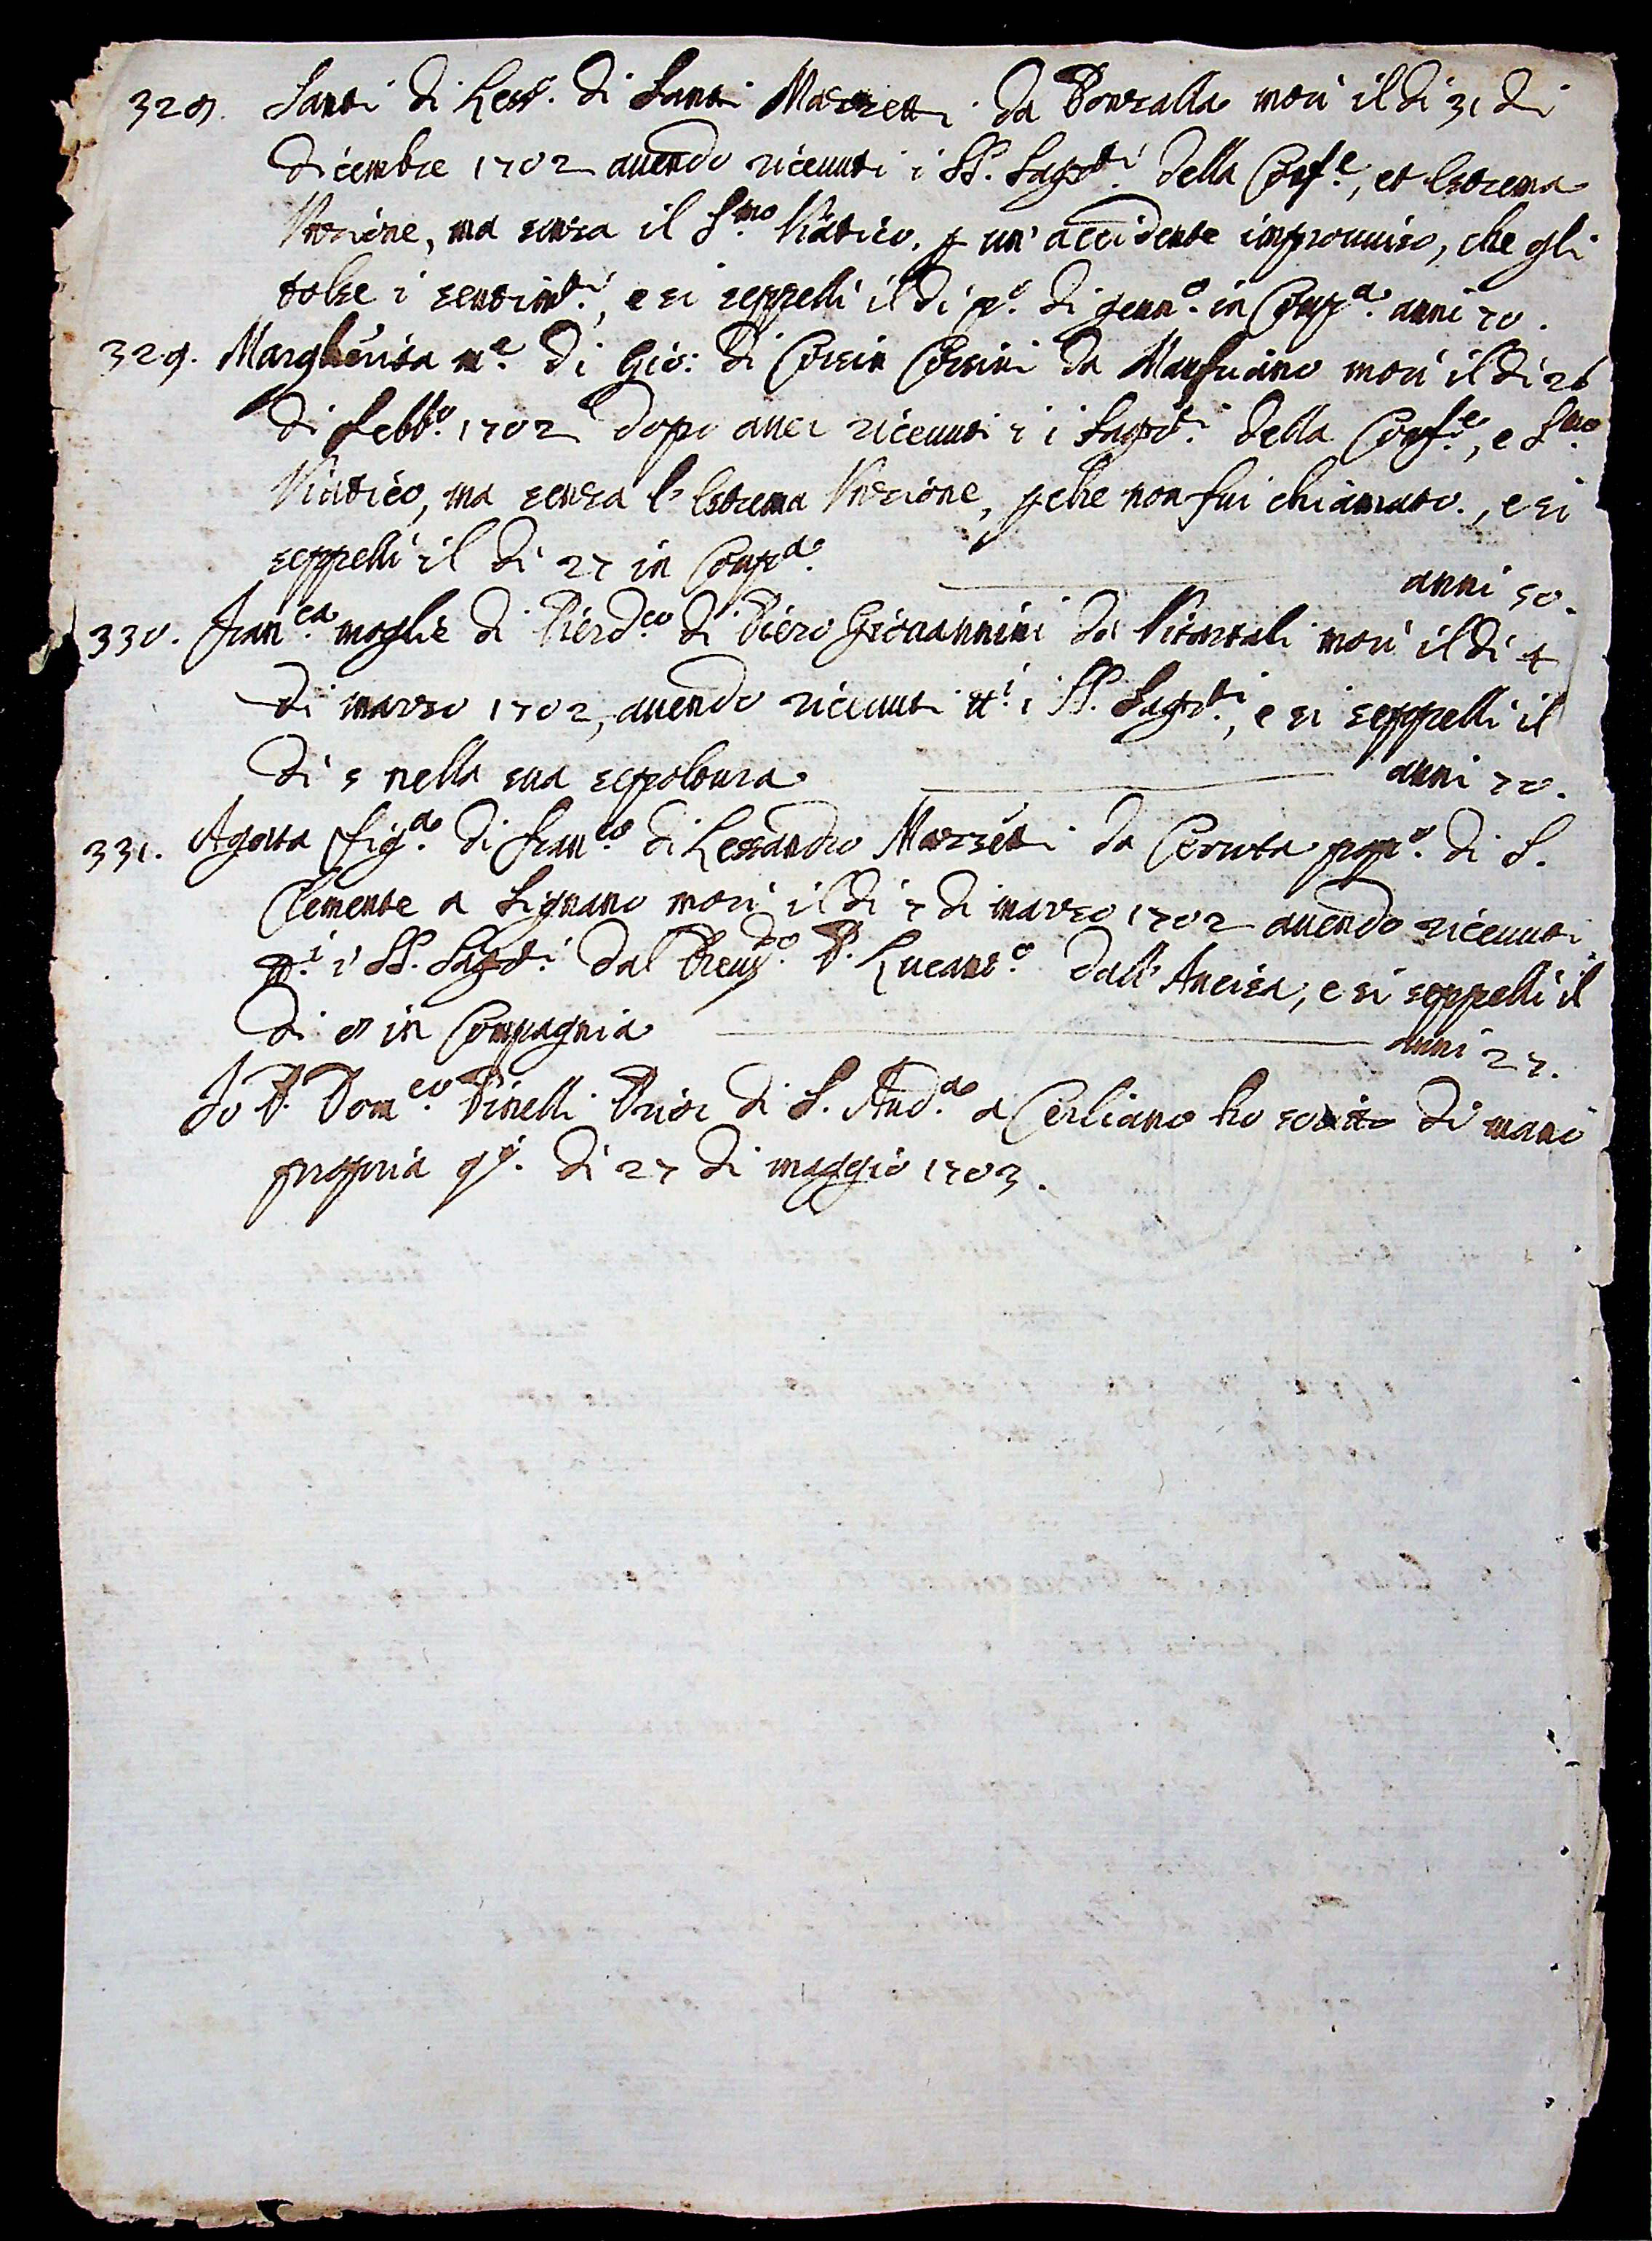 328. Santi di Less.º di Santi Mazzetti da Ponzalla morì il dì 31 di
dicembre 1702 auendo riceuuti i SS. Sagr.ti della Conf.e, et Estrema
Unzione, ma senza il S.mo Viatico, p un' accidente improuuiso, che gli
tolse i sentim.ti, e si seppellì il dì p.º di Genn.º in Comp.a anni 70.
329. Margherita m.e di Gio: di Corsin Corsini da morì il dì 26
di Febb.º 1702 dopo auer riceuuti i Sagr.ti della Conf.e, e S.mo
Viatico, ma senza l' Estrema Unzione, pche non fui chiamato, e si
seppellì il dì 27 in Comp.a
anni 50.
330. Fran.ca moglie di Pierd.co di Piero Giouannini da morì il dì 4
di marzo 1702, auendo riceuuti tt.i i SS. Sagr.ti, e si seppellì il
dì 5 nella sua sepoltura
anni 70.
331. Agata fig.a di Fran.co di Lessandro Mazzetti da Ceruta pop.º di S.
Clemente a Signano morì il dì 7 di marzo 1702 auendo riceuuti
tt.i i SS. Sagr.ti dal P. dall' Ancisa, e si seppellì il
dì 8 in Compagnia
anni 27.
Io P. Dom.co Pinelli Prior di S. And.a a Cerliano ho scritto di mano
propria q.º dì 27 di maggio 1703.